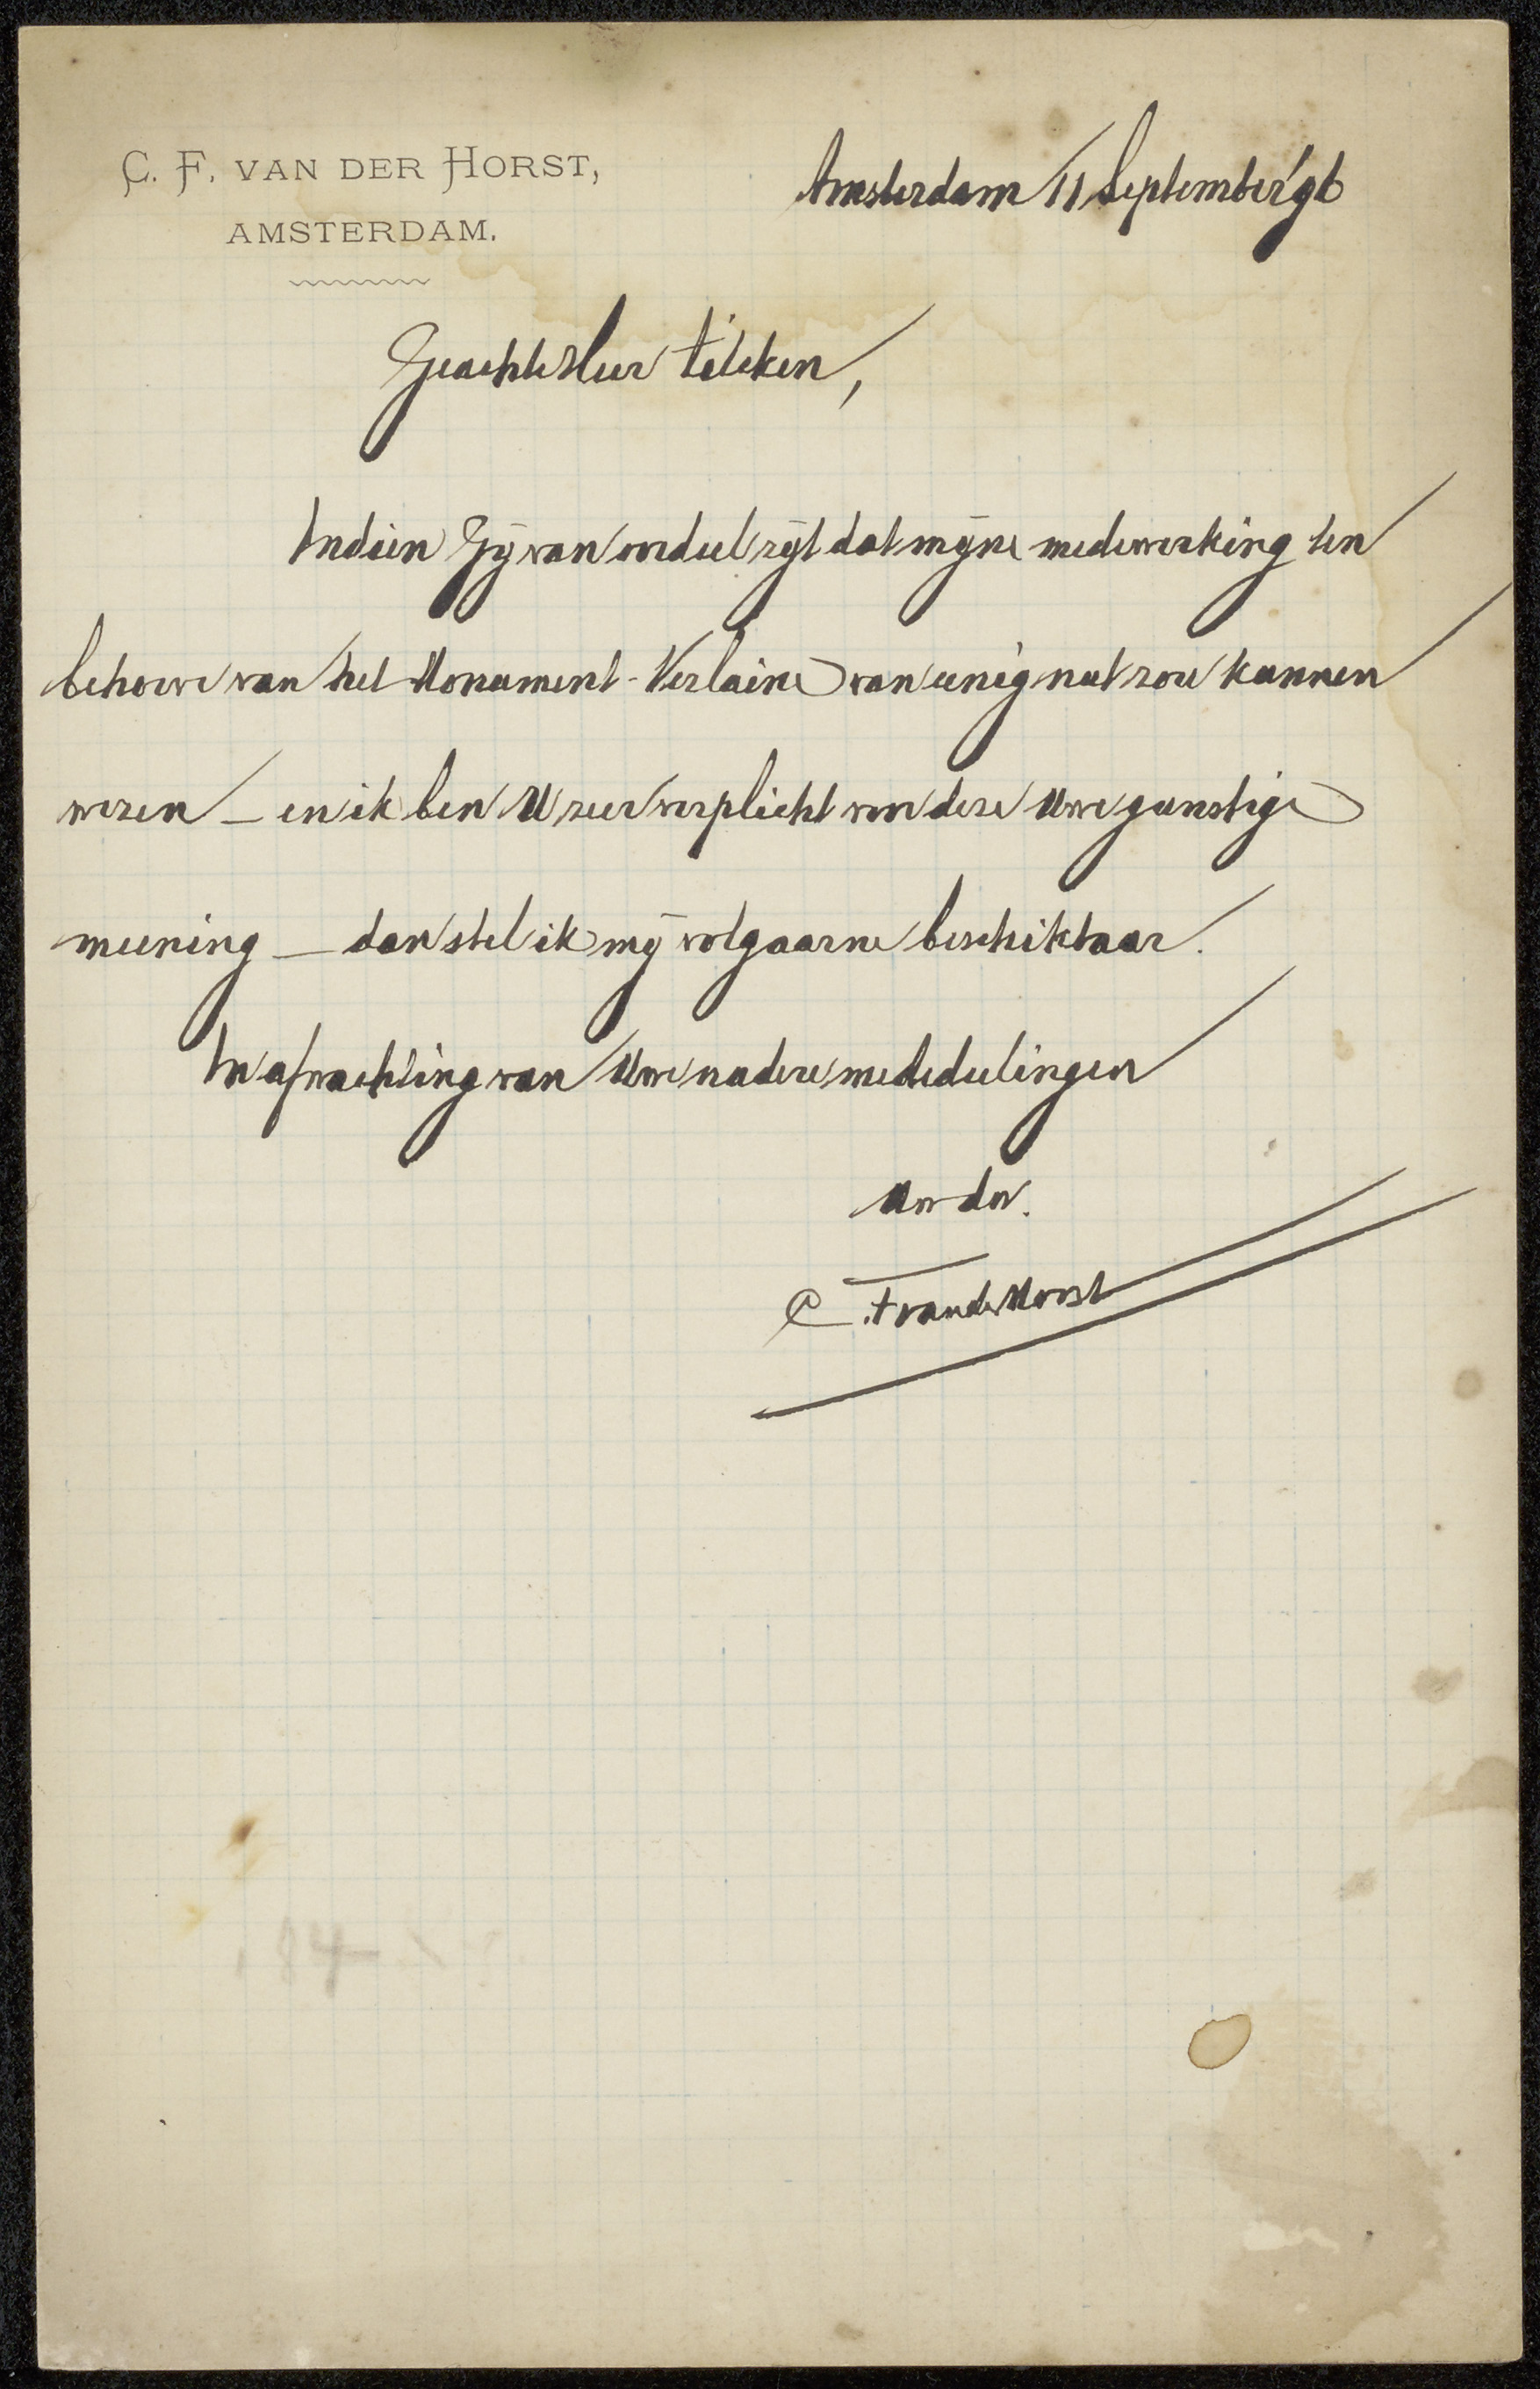 C. F. VAN DER HORST,
AMSTERDAM.
Amsterdam 11 September '96
Geachte Heer Zilcken,
Indien Gij van oordeel zijt dat mijne medewerking ten
behoeve van het Monument-Verlaine van eenig nut zou kunnen
wezen – en ik ben U zeer verplicht voor deze Uwe gunstige
meening – dan stel ik mij volgaarne beschikbaar.
In afwachting van Uwe nadere mededeelingen
Uw dw.
C. F. van der Horst